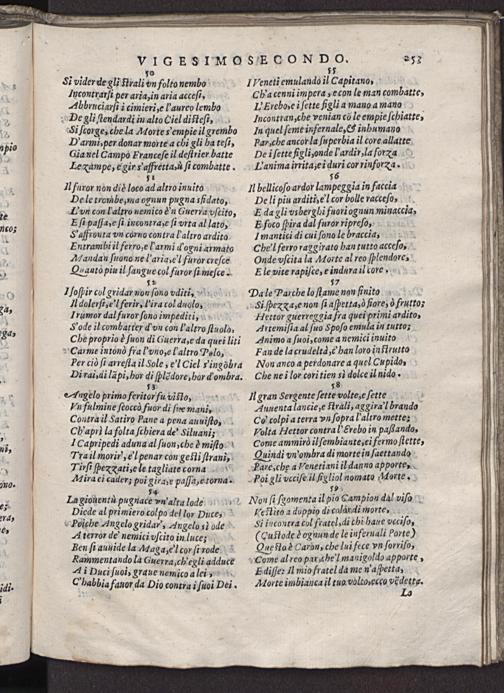 VIGESIMOSECONDO. 253
50
Si vider de gli strali vn folto nembo
Incontrarsi per aria, in aria accesi,
Abbruciarsi i cimieri, e l'aureo lembo
De gli stendardi in alto Ciel distesi,
Si scorge, che la Morte s'empie il grembo
D'armi, per donar morte a chi gli ha tesi,
Gia nel Campo Francese il destrier batte
Le zampe, e gir s'affretta, ù si combatte.
51
Il furor non diè loco ad altro inuito
De le trombe, ma ognun pugna sfidato,
L'vn con l'altro nemico è'n Guerra vscito,
E si passa, e si incontra, e si vrta al lato,
S'affronta vn corno contra l'altro ardito
Entrambi il ferro, e l'armi d'ogni armato
Mandan suono ne l'aria, e'l furor cresce
Quanto piu il sangue col furor si mesce.
52
I sospir col gridar non sono vditi,
Il dolersi, e'l ferir, l'ira col duolo,
I rumor dal furor sono impediti,
S'ode il combatter d'vn con l'altro stuolo,
Che proprio è suon di Guerra, e da quei liti
Carme intonò fra l'vno, e l'altro Polo,
Per ciò si arresta il Sole, e'l Ciel s'ingòbra
Di rai, di lãpi, hor di splẽdore, hor d'ombra.
53
Angelo primo feritor fu visto,
Vn fulmine scoccò fuor di sue mani,
Contra il Satiro Pane a pena auuisto,
Ch'aprì la folta schiera de' Siluani;
I Capripedi aduna al suon, che è misto
Tra il morir', e'l penar con gesti strani,
Tirsi spezzati, e le tagliate corna
Mira ei cader; poi gira, e passa, e torna.
54
La giouentù pugnace vn'alta lode
Diede al primiero colpo del lor Duce,
Poiche Angelo gridar', Angelo si ode
A terror de' nemici vscito in luce;
Ben si auuide la Maga, e'l cor si rode
Rammentando la Guerra, ch'egli adduce
A i Duci suoi, graue nemico a lei,
C'habbia fauor da Dio contra i suoi Dei.
55
I Veneti emulando il Capitano,
Ch'a cenni impera, e con le man combatte,
L'Erebo, e i sette figli a mano a mano
Incontran, che venian cõ le empie schiatte,
In quel seme infernale, & inhumano
Par, che ancor la superbia il core allatte
De i sette figli, onde l'ardir, la forza
L'anima irrita, e i duri cor rinforza.
56
Il bellicoso ardor lampeggia in faccia
De li piu arditi, e'l cor bolle racceso,
E da gli vsberghi fuori ognun minaccia,
E foco spira dal furor ripreso,
I mantici di cui sono le braccia,
Che'l ferro raggirato han tutto acceso,
Onde vscita la Morte al reo splendore,
E le vite rapisce, e indura il core.
57
Da le Parche lo stame non finito
Si spezza, e non si aspetta, ò fiore, ò frutto;
Hettor guerreggia fra quei primi ardito,
Artemisia al suo Sposo emula in tutto;
Animo a suoi, come a nemici inuito
Fan de la crudeltà, c'han loro instrutto
Non anco a perdonare a quel Cupido,
Che ne i lor cori tien sì dolce il nido.
58
Il gran Sergente sette volte, e sette
Auuenta lancie, e strali, aggira'l brando
Co' colpi a terra vn sopra l'altro mette;
Volta Hettor contra l'Erebo in passando,
Come ammirò il sembiante, ei fermo stette,
Quindi vn'ombra di morte in saettando
Pare, che a Venetiani il danno apporte,
Poi gli vccise il figliol nomato Morte.
59
Non si sgomenta il pio Campion dal viso
Vestito a doppio di color di morte,
Si incontra col fratel, di chi haue vcciso,
(Custode è ognun de le infernali Porte)
Questo è Caròn, che lui fece vn sorriso,
Come al reo par, che'l manigoldo apporte,
E disse: Il mio fratel da me n'aspetta,
Morte imbianca il tuo volto, ecco vẽdetta.
Lo